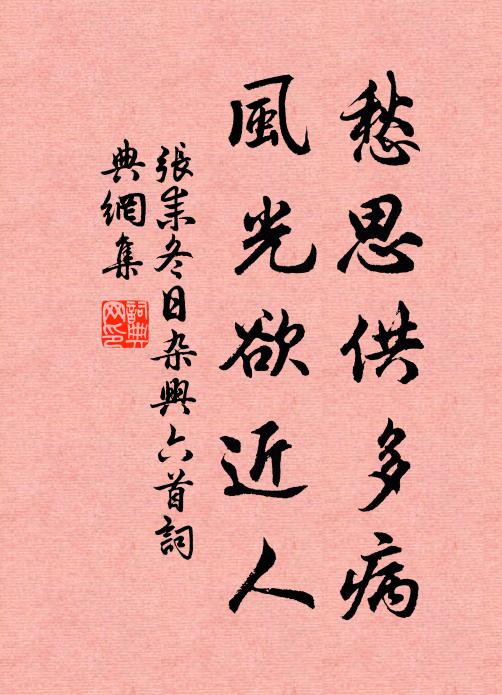 愁思供多病
風光欲近人
張耒冬日杂興六首詞
典網集
詞典网印